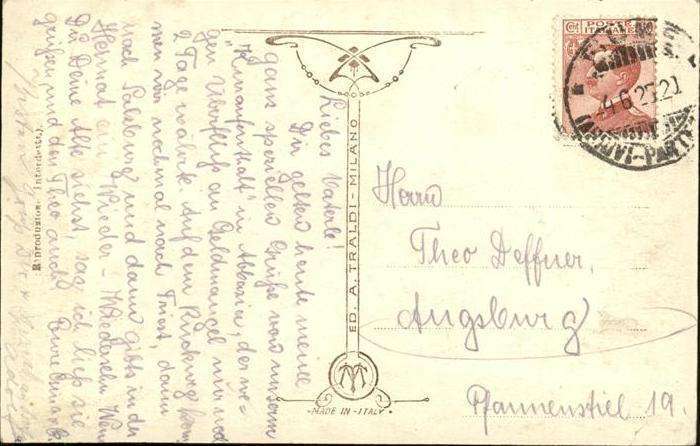 Liebes Vaterle!
Dir gelten heute meine
ganz speziellen Grüße von unserm
"Zwangsaufenthalt" in Abbazia, der we-
gen Überfluß an Geldmangel nur
2 Tage währte. Auf dem Rückweg kom-
men wir nochmal nach Triest, dann
nach Salzburg und dann gibts in der
Heimat ein Wieder-Wiedersehn. Wenn
Du Deine Alte siehst, sag ich ließ sie
grüßen und den Theo auch. Eure
Riproduzion. interdett.
ED. A. TRALDI - MILANO
-MADE IN -ITALY-
POSTE ITALIANE
4.6.25.20
Herrn
Theo Deffner,
Augsburg
Pfannenstiel 19.